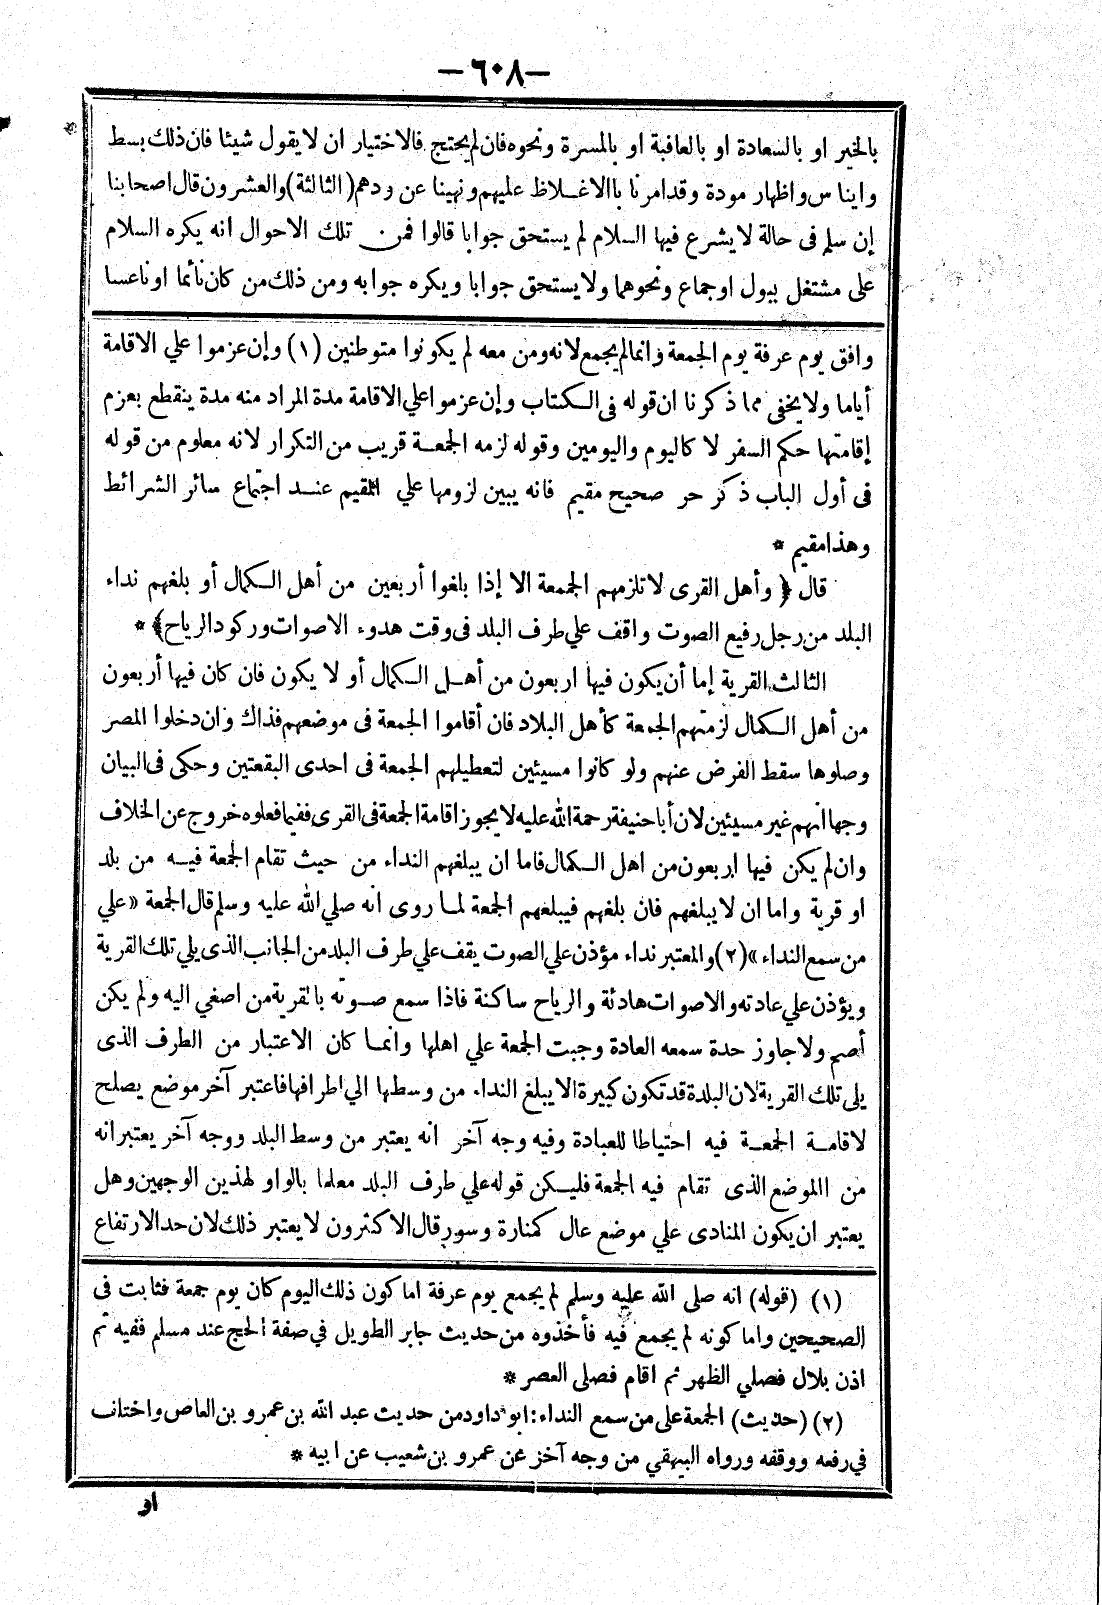 —٦٠٨—
بالخير او بالسعادة او بالعافية او بالمسرة ونحوه فان لم يحتج فالاختيار ان لا يقول شيئا فان ذلك بسط
وايناس واظهار مودة وقد امرنا بالاغلاظ عليهم ونهينا عن ودهم (الثالثة) والعشرون قال اصحابنا
إن سلم فى حالة لا يشرع فيها السلام لم يستحق جوابا قالوا فمن تلك الاحوال انه يكره السلام
على مشتغل ببول او جماع ونحوهما ولا يستحق جوابا ويكره جوابه ومن ذلك من كان نائما او ناعسا
وافق يوم عرفة يوم الجمعة وانما لم يجمع لانه ومن معه لم يكونوا متوطنين (١) وإن عزموا علي الاقامة
أياما ولا يخفى مما ذكرنا ان قوله فى الكتاب وإن عزموا علي الاقامة مدة المراد منه مدة ينقطع بعزم
إقامتها حكم السفر لا كاليوم واليومين وقوله لزمه الجمعة قريب من التكرار لانه معلوم من قوله
فى أول الباب ذكر حر صحيح مقيم فانه يبين لزومها علي المقيم عند اجتماع سائر الشرائط
وهذا مقيم *
قال ﴿ وأهل القرى لا تلزمهم الجمعة الا إذا بلغوا أربعين من أهل الكمال أو بلغهم نداء
البلد من رجل رفيع الصوت واقف علي طرف البلد فى وقت هدوء الاصوات وركود الرياح﴾ *
الثالث القرية إما أن يكون فيها اربعون من أهل الكمال أو لا يكون فان كان فيها أربعون
من أهل الكمال لزمتهم الجمعة كأهل البلاد فان أقاموا الجمعة فى موضعهم فذاك وان دخلوا المصر
وصلوها سقط الفرض عنهم ولو كانوا مسيئين لتعطيلهم الجمعة فى احدى البقعتين وحكى فى البيان
وجها انهم غير مسيئين لان أبا حنيفة رحمة الله عليه لا يجوز اقامة الجمعة فى القرى ففيما فعلوه خروج عن الخلاف
وان لم يكن فيها اربعون من اهل الكمال فاما ان يبلغهم النداء من حيث تقام الجمعة فيه من بلد
او قرية واما ان لا يبلغهم فان بلغهم فيبلغهم الجمعة لما روى انه صلي الله عليه وسلم قال الجمعة «علي
من سمع النداء» (٢) والمعتبر نداء مؤذن علي الصوت يقف علي طرف البلد من الجانب الذى يلي تلك القرية
ويؤذن علي عادته والاصوات هادئة والرياح ساكنة فاذا سمع صوته بالقرية من اصغي اليه ولم يكن
أصم ولا جاوز حدة سمعه العادة وجبت الجمعة علي اهلها وانما كان الاعتبار من الطرف الذى
يلى تلك القرية لان البلدة قد تكون كبيرة لا يبلغ النداء من وسطها الي اطرافها فاعتبر آخر موضع يصلح
لاقامة الجمعة فيه احتياطا للعبادة وفيه وجه آخر انه يعتبر من وسط البلد ووجه آخر يعتبر انه
من الموضع الذى تقام فيه الجمعة فليكن قوله علي طرف البلد معلما بالواو لهذين الوجهين وهل
يعتبر ان يكون المنادى علي موضع عال كمنارة وسور قال الاكثرون لا يعتبر ذلك لان حد الارتفاع
(١) (قوله) انه صلى الله عليه وسلم لم يجمع يوم عرفة اما كون ذلك اليوم كان يوم جمعة فثابت فى
الصحيحين واما كونه لم يجمع فيه فأخذوه من حديث جابر الطويل في صفة الحج عند مسلم ففيه ثم
اذن بلال فصلي الظهر ثم اقام فصلى العصر *
(٢) (حديث) الجمعة على من سمع النداء: ابو داود من حديث عبد الله بن عمرو بن العاص واختلف
في رفعه ووقفه ورواه البيهقي من وجه آخر عن عمرو بن شعيب عن ابيه *
او